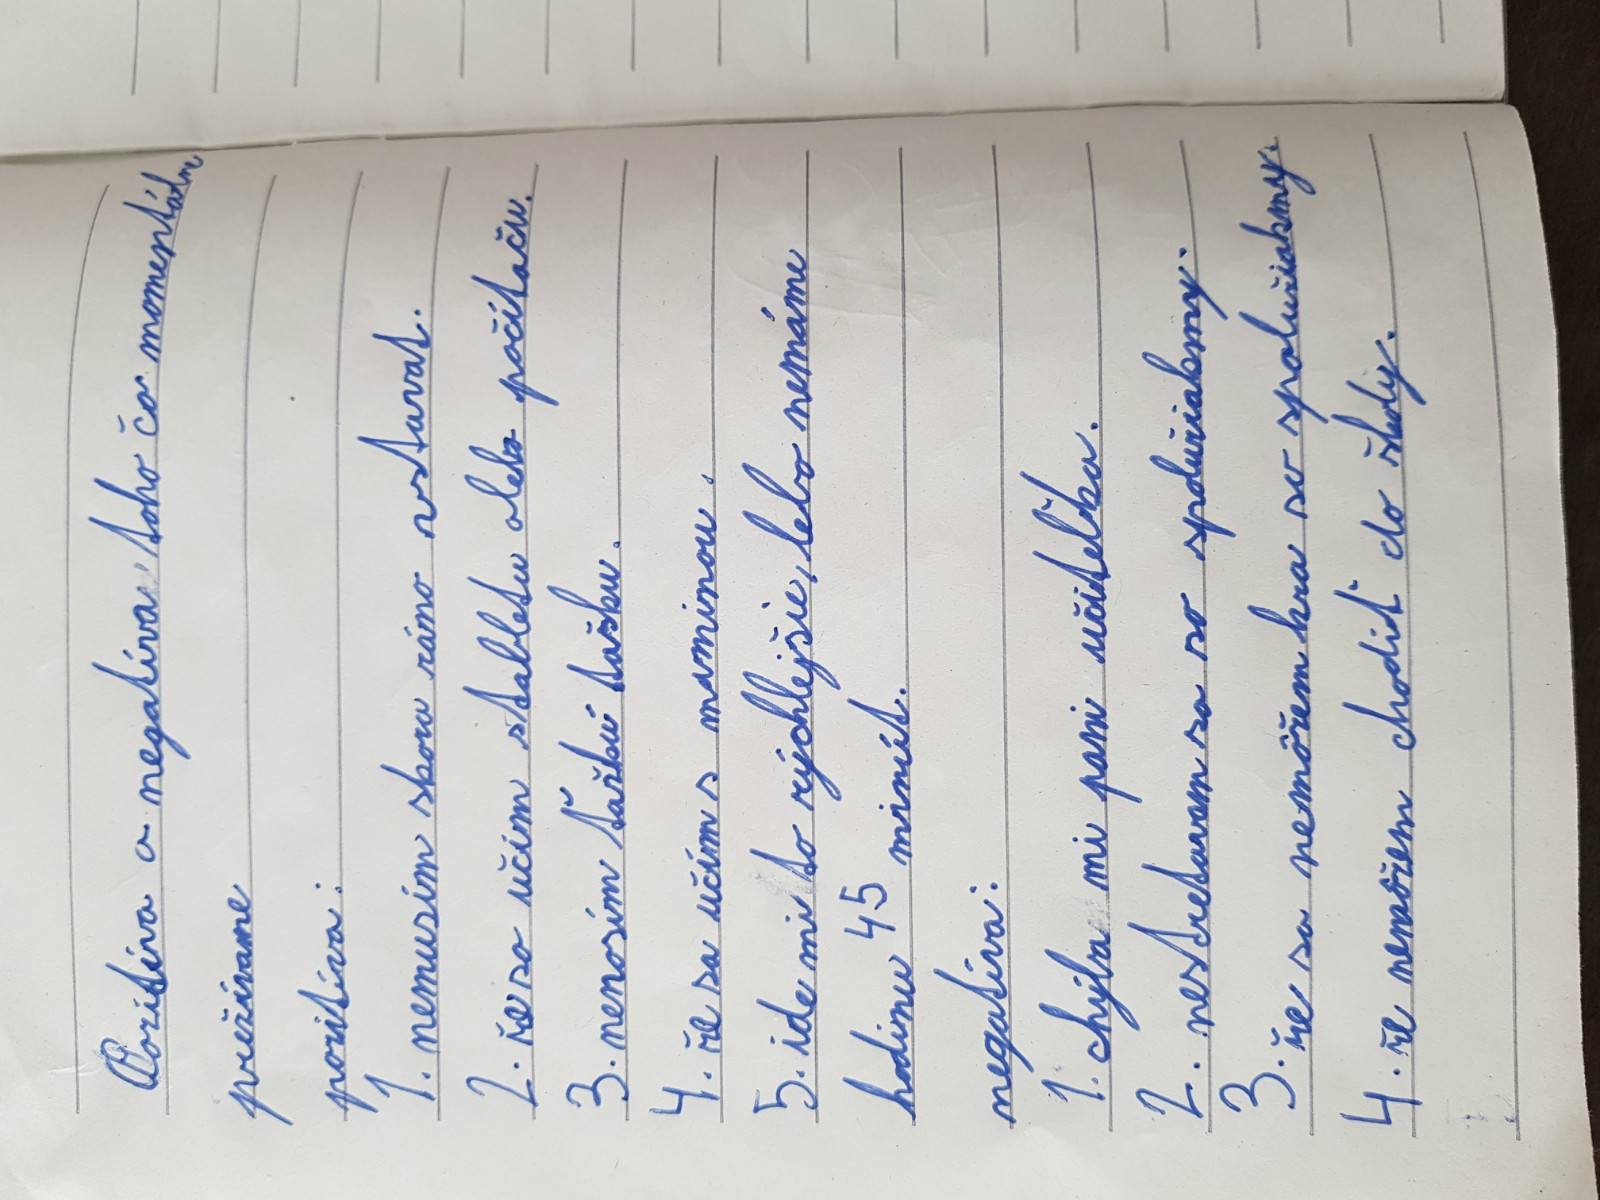 Pozitíva a negatíva toho čo momentálne
prežívame
pozitíva:
1. nemusím skoro ráno vstavat.
2. že sa učím stabletu alebo počítaču.
3. nenosím ťažkú tašku.
4. že sa učím s maminou.
5. ide mi to rýchlejšie, lebo nemáme
hodinu 45 minút.
negatíva:
1. chýba mi pani učiteľka.
2. nestretavam sa so spolužiakmy.
3. že sa nemôžem hra so spolužiakmy.
4. že nemôžem chodiť do školy.